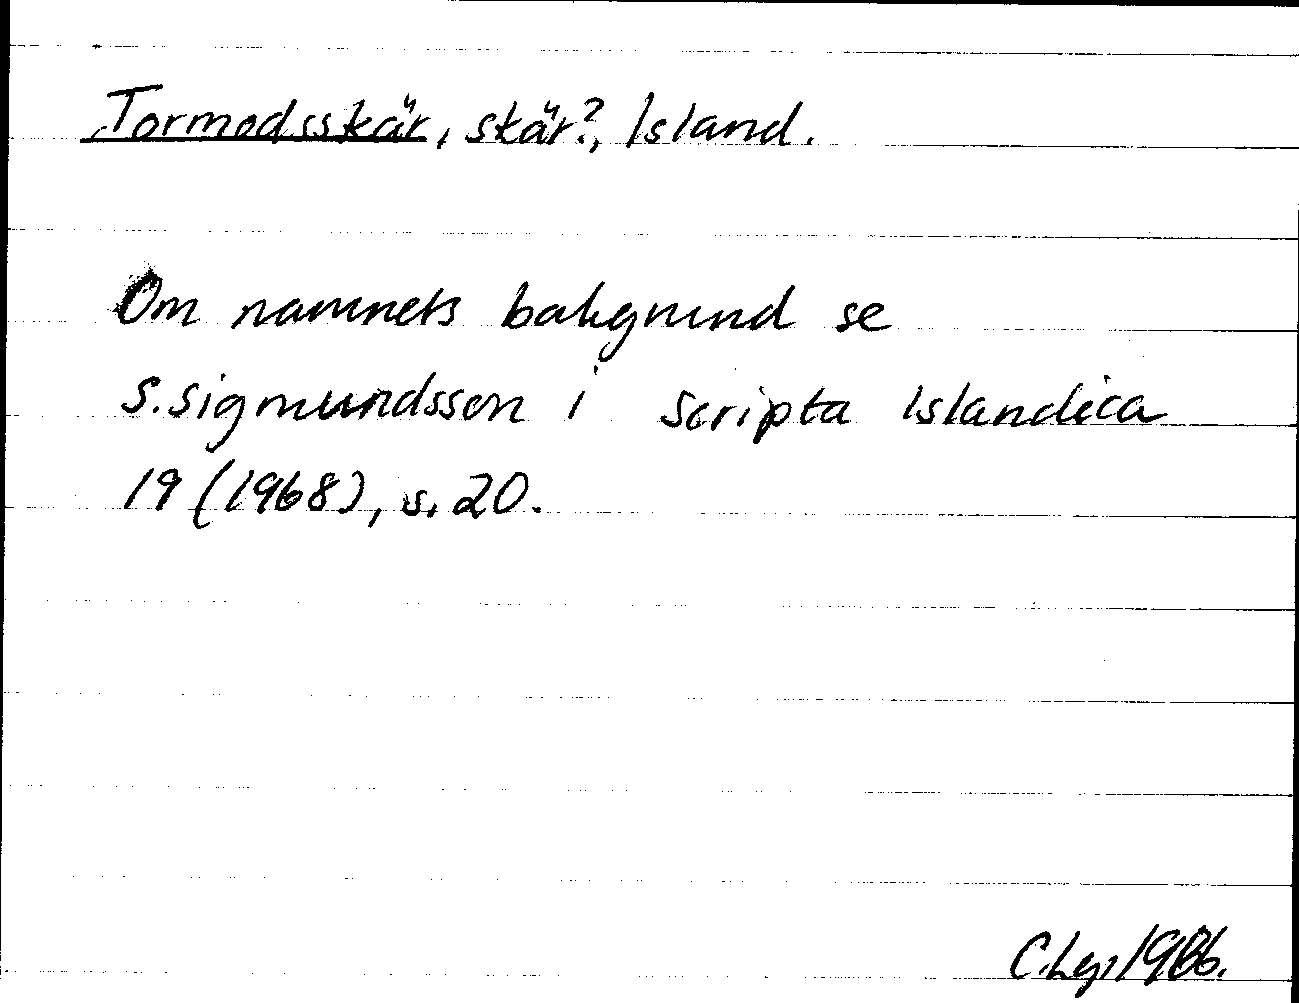 Tormodsskär, skär?, Island.
Om namnets bakgrund se
S. Sigmundsson i Scripta Islandica
19 (1968), s. 20.
C. Lg, 1986.